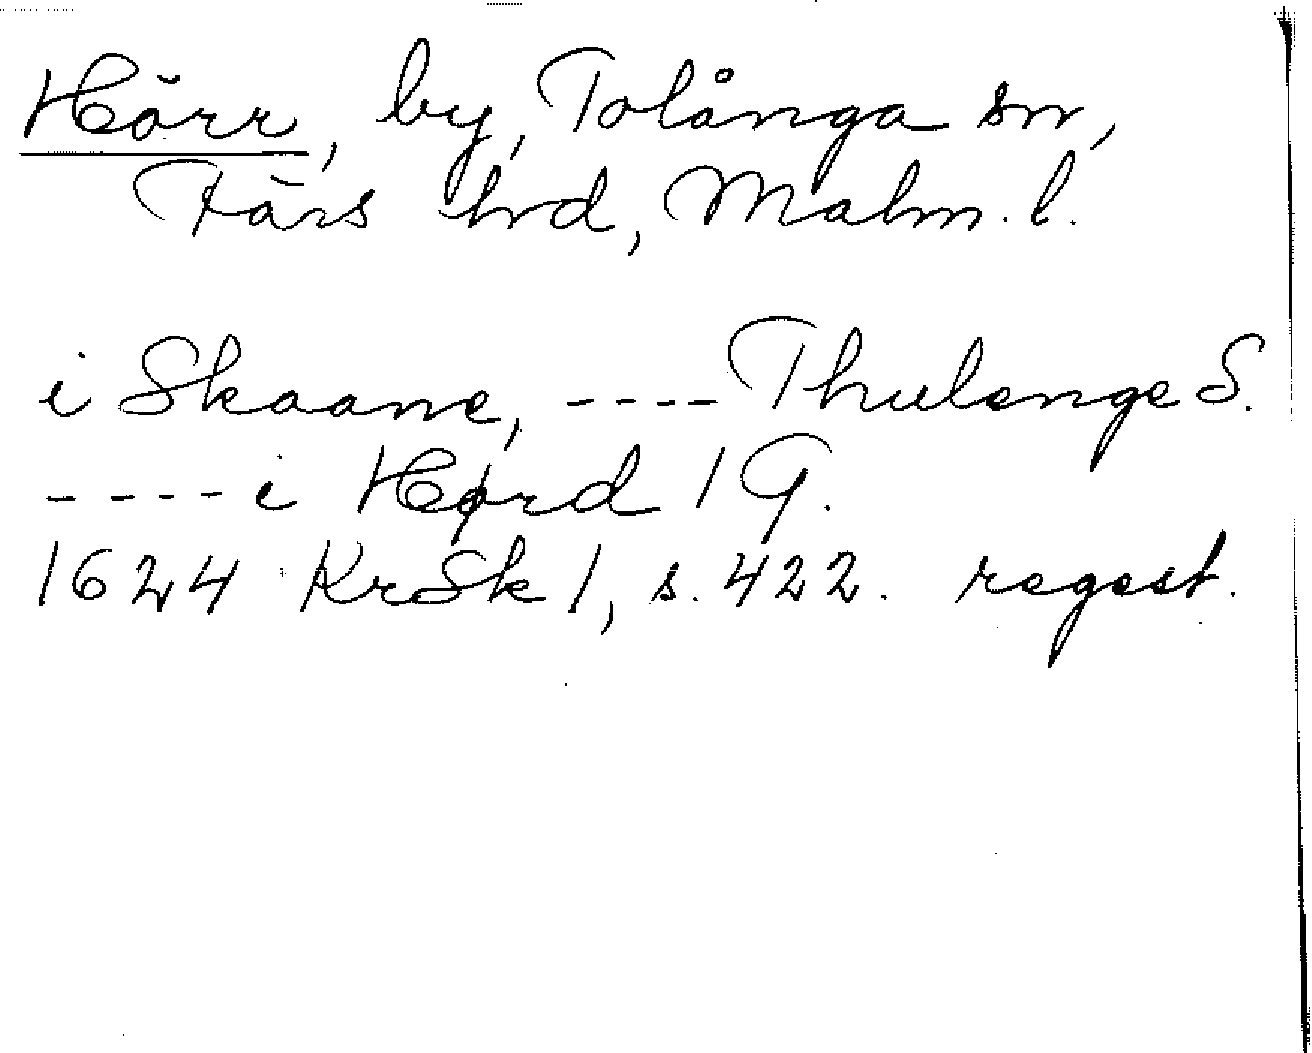 Hörr, by, Tolånga sn,
Färs hrd, Malm. l.
i Skaane, ---- Thulenge S.
---- i Hørd 1 G.
1624 KrSk 1, s. 422. regest.